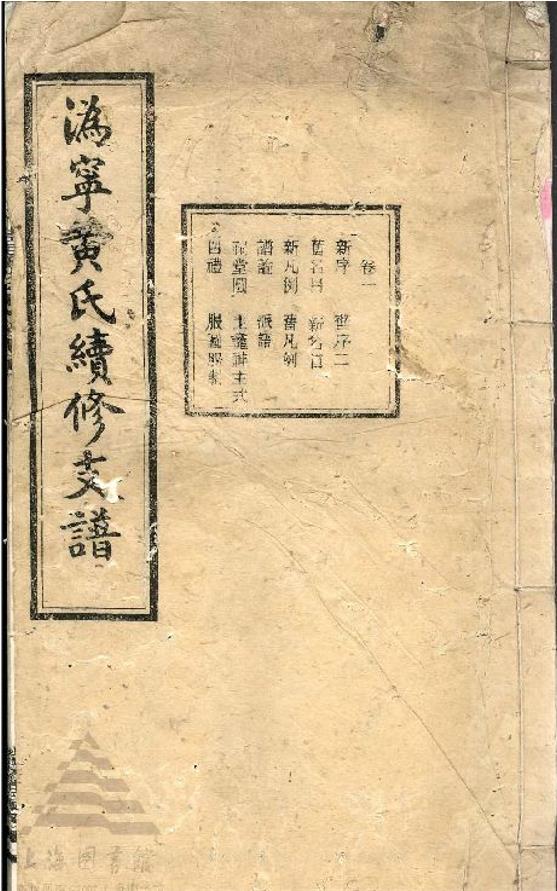 溈寧黄氏續修支譜
卷一
新序 舊序二
舊名目 新名目
新凡例 舊凡例
譜論 派語
祠堂圖 主龕神主式
四禮 服制
上海圖書館